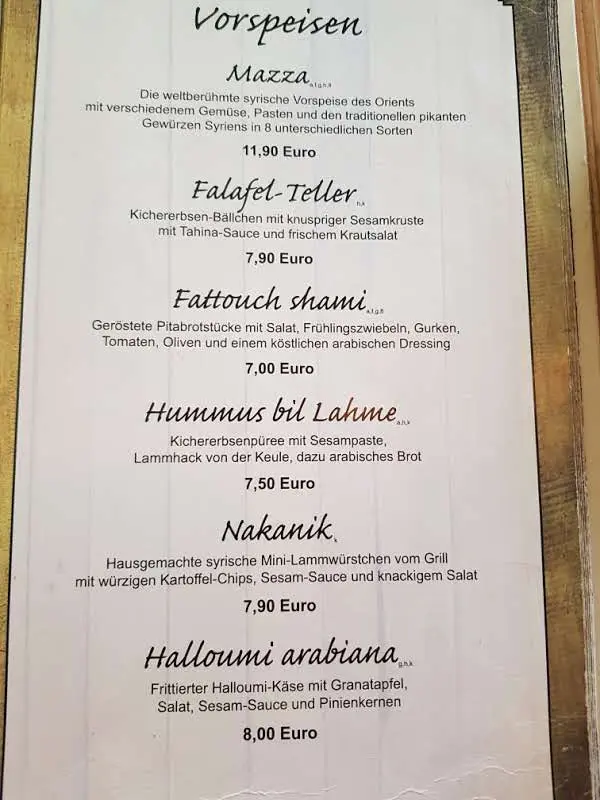 Vorspeisen
Mazza
Die weltberühmte syrische Vorspeise des Orients
mit verschiedenem Gemüse, Pasten und den traditionellen pikanten
Gewürzen Syriens in 8 unterschiedlichen Sorten
11,90 Euro
Falafel-Teller h,k
Kichererbsen-Bällchen mit knuspriger Sesamkruste
mit Tahina-Sauce und frischem Krautsalat
7,90 Euro
Fattouch shami
Geröstete Pitabrotstücke mit Salat, Frühlingszwiebeln, Gurken,
Tomaten, Oliven und einem köstlichen arabischen Dressing
7,00 Euro
Hummus bil Lahme a,h,k
Kichererbsenpüree mit Sesampaste,
Lammhack von der Keule, dazu arabisches Brot
7,50 Euro
Nakanik k
Hausgemachte syrische Mini-Lammwürstchen vom Grill
mit würzigen Kartoffel-Chips, Sesam-Sauce und knackigem Salat
7,90 Euro
Halloumi arabiana g,h,k
Frittierter Halloumi-Käse mit Granatapfel,
Salat, Sesam-Sauce und Pinienkernen
8,00 Euro